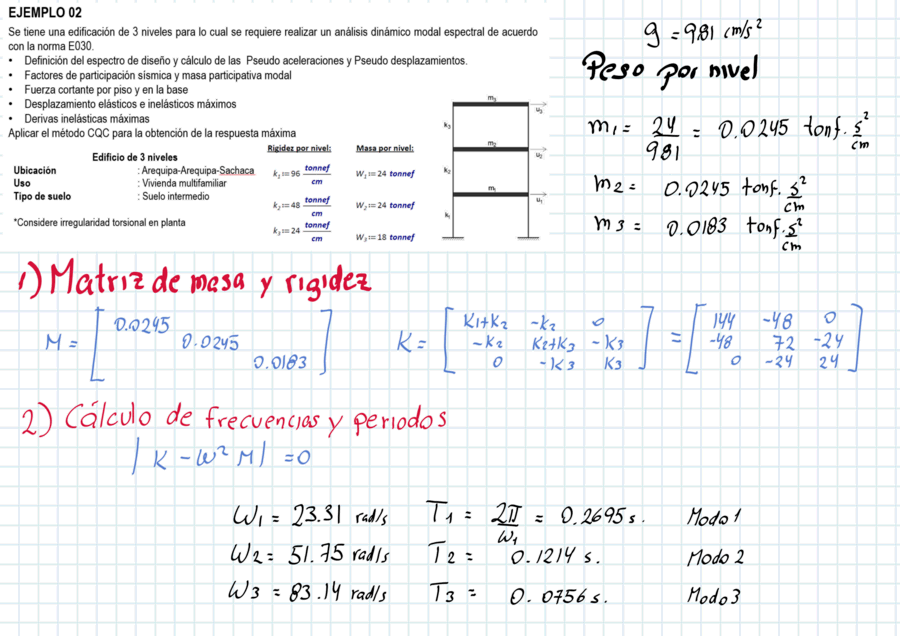 EJEMPLO 02
Se tiene una edificación de 3 niveles para lo cual se requiere realizar un análisis dinámico modal espectral de acuerdo
con la norma E030.
• Definición del espectro de diseño y cálculo de las Pseudo aceleraciones y Pseudo desplazamientos.
• Factores de participación sísmica y masa participativa modal
• Fuerza cortante por piso y en la base
• Desplazamiento elásticos e inelásticos máximos
• Derivas inelásticas máximas
Aplicar el método CQC para la obtención de la respuesta máxima
Edificio de 3 niveles
Ubicación : Arequipa-Arequipa-Sachaca
Uso : Vivienda multifamiliar
Tipo de suelo : Suelo intermedio
*Considere irregularidad torsional en planta
Rigidez por nivel:
k₁:=96 tonnef/cm
k₂:=48 tonnef/cm
k₃:=24 tonnef/cm
Masa por nivel:
W₁:=24 tonnef
W₂:=24 tonnef
W₃:=18 tonnef
m₃
u₃
k₃
m₂
u₂
k₂
m₁
u₁
k₁
g = 981 cm/s²
Peso por nivel
m1 = 24/981 = 0.0245 tonf. s²/cm
m2 = 0.0245 tonf. s²/cm
m3 = 0.0183 tonf. s²/cm
1) Matriz de masa y rigidez
M = [ 0.0245
0.0245
0.0183 ]
K = [ K1+K2 -K2 0
-K2 K2+K3 -K3
0 -K3 K3 ]
= [ 144 -48 0
-48 72 -24
0 -24 24 ]
2) Cálculo de frecuencias y periodos
| K - W² M | = 0
W1 = 23.31 rad/s T1 = 2π/W1 = 0.2695 s. Modo 1
W2 = 51.75 rad/s T2 = 0.1214 s. Modo 2
W3 = 83.14 rad/s T3 = 0.0756 s. Modo 3